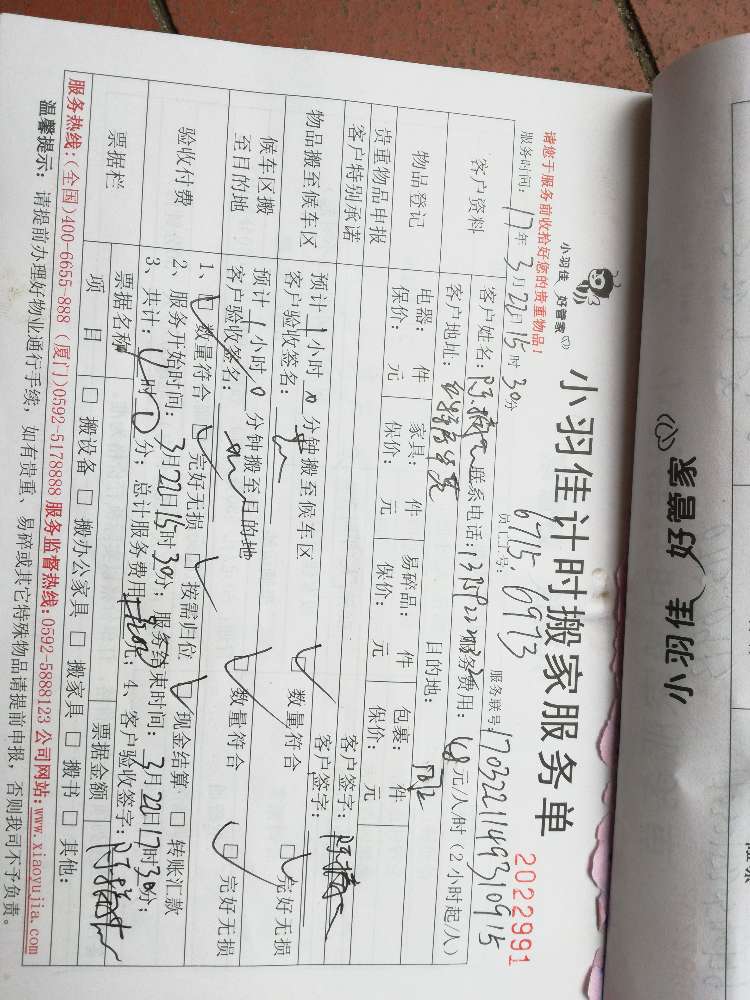 小羽佳 好管家
小羽佳计时搬家服务单
2022991
请您于服务前收拾好您的贵重物品！
服务时间：17年3月22日15时30分 员工工号：6715 6973 服务联号：1703221149310915
客户资料 客户姓名： 联系电话： 服务费用：68元/人/时（2小时起/人）
客户地址： 目的地：
物品登记 电器： 件 家具： 件 易碎品： 件 包裹： 件
保价： 元 保价： 元 保价： 元 保价： 元
贵重物品申报 客户签字：
客户特别承诺 客户签字：
物品搬至候车区 预计1小时0分钟搬至候车区 □ 数量符合 □ 完好无损
客户验收签名：
候车区搬至目的地 预计1小时0分钟搬至目的地 □ 数量符合 □ 完好无损
客户验收签名：
验收付费 1、□ 数量符合 □ 完好无损 □ 按需归位 □ 现金结算 □ 转账汇款
2、服务开始时间：3月22日15时30分；服务结束时间：3月22日17时30分；
3、共计： 时 分；总计服务费用： 元；4、客户验收签字：
票据栏 票据名称 票据金额
项目 □ 搬设备 □ 搬办公家具 □ 搬家具 □ 搬书 □ 其他：
服务热线：（全国）400-6655-888（厦门）0592-5178888 服务监督热线：0592-5888123 公司网站：www.xiaoyujia.com
温馨提示：请提前办理好物业通行手续，如有贵重、易碎或其它特殊物品请提前申报，否则我司不予负责。
小羽佳 好管家